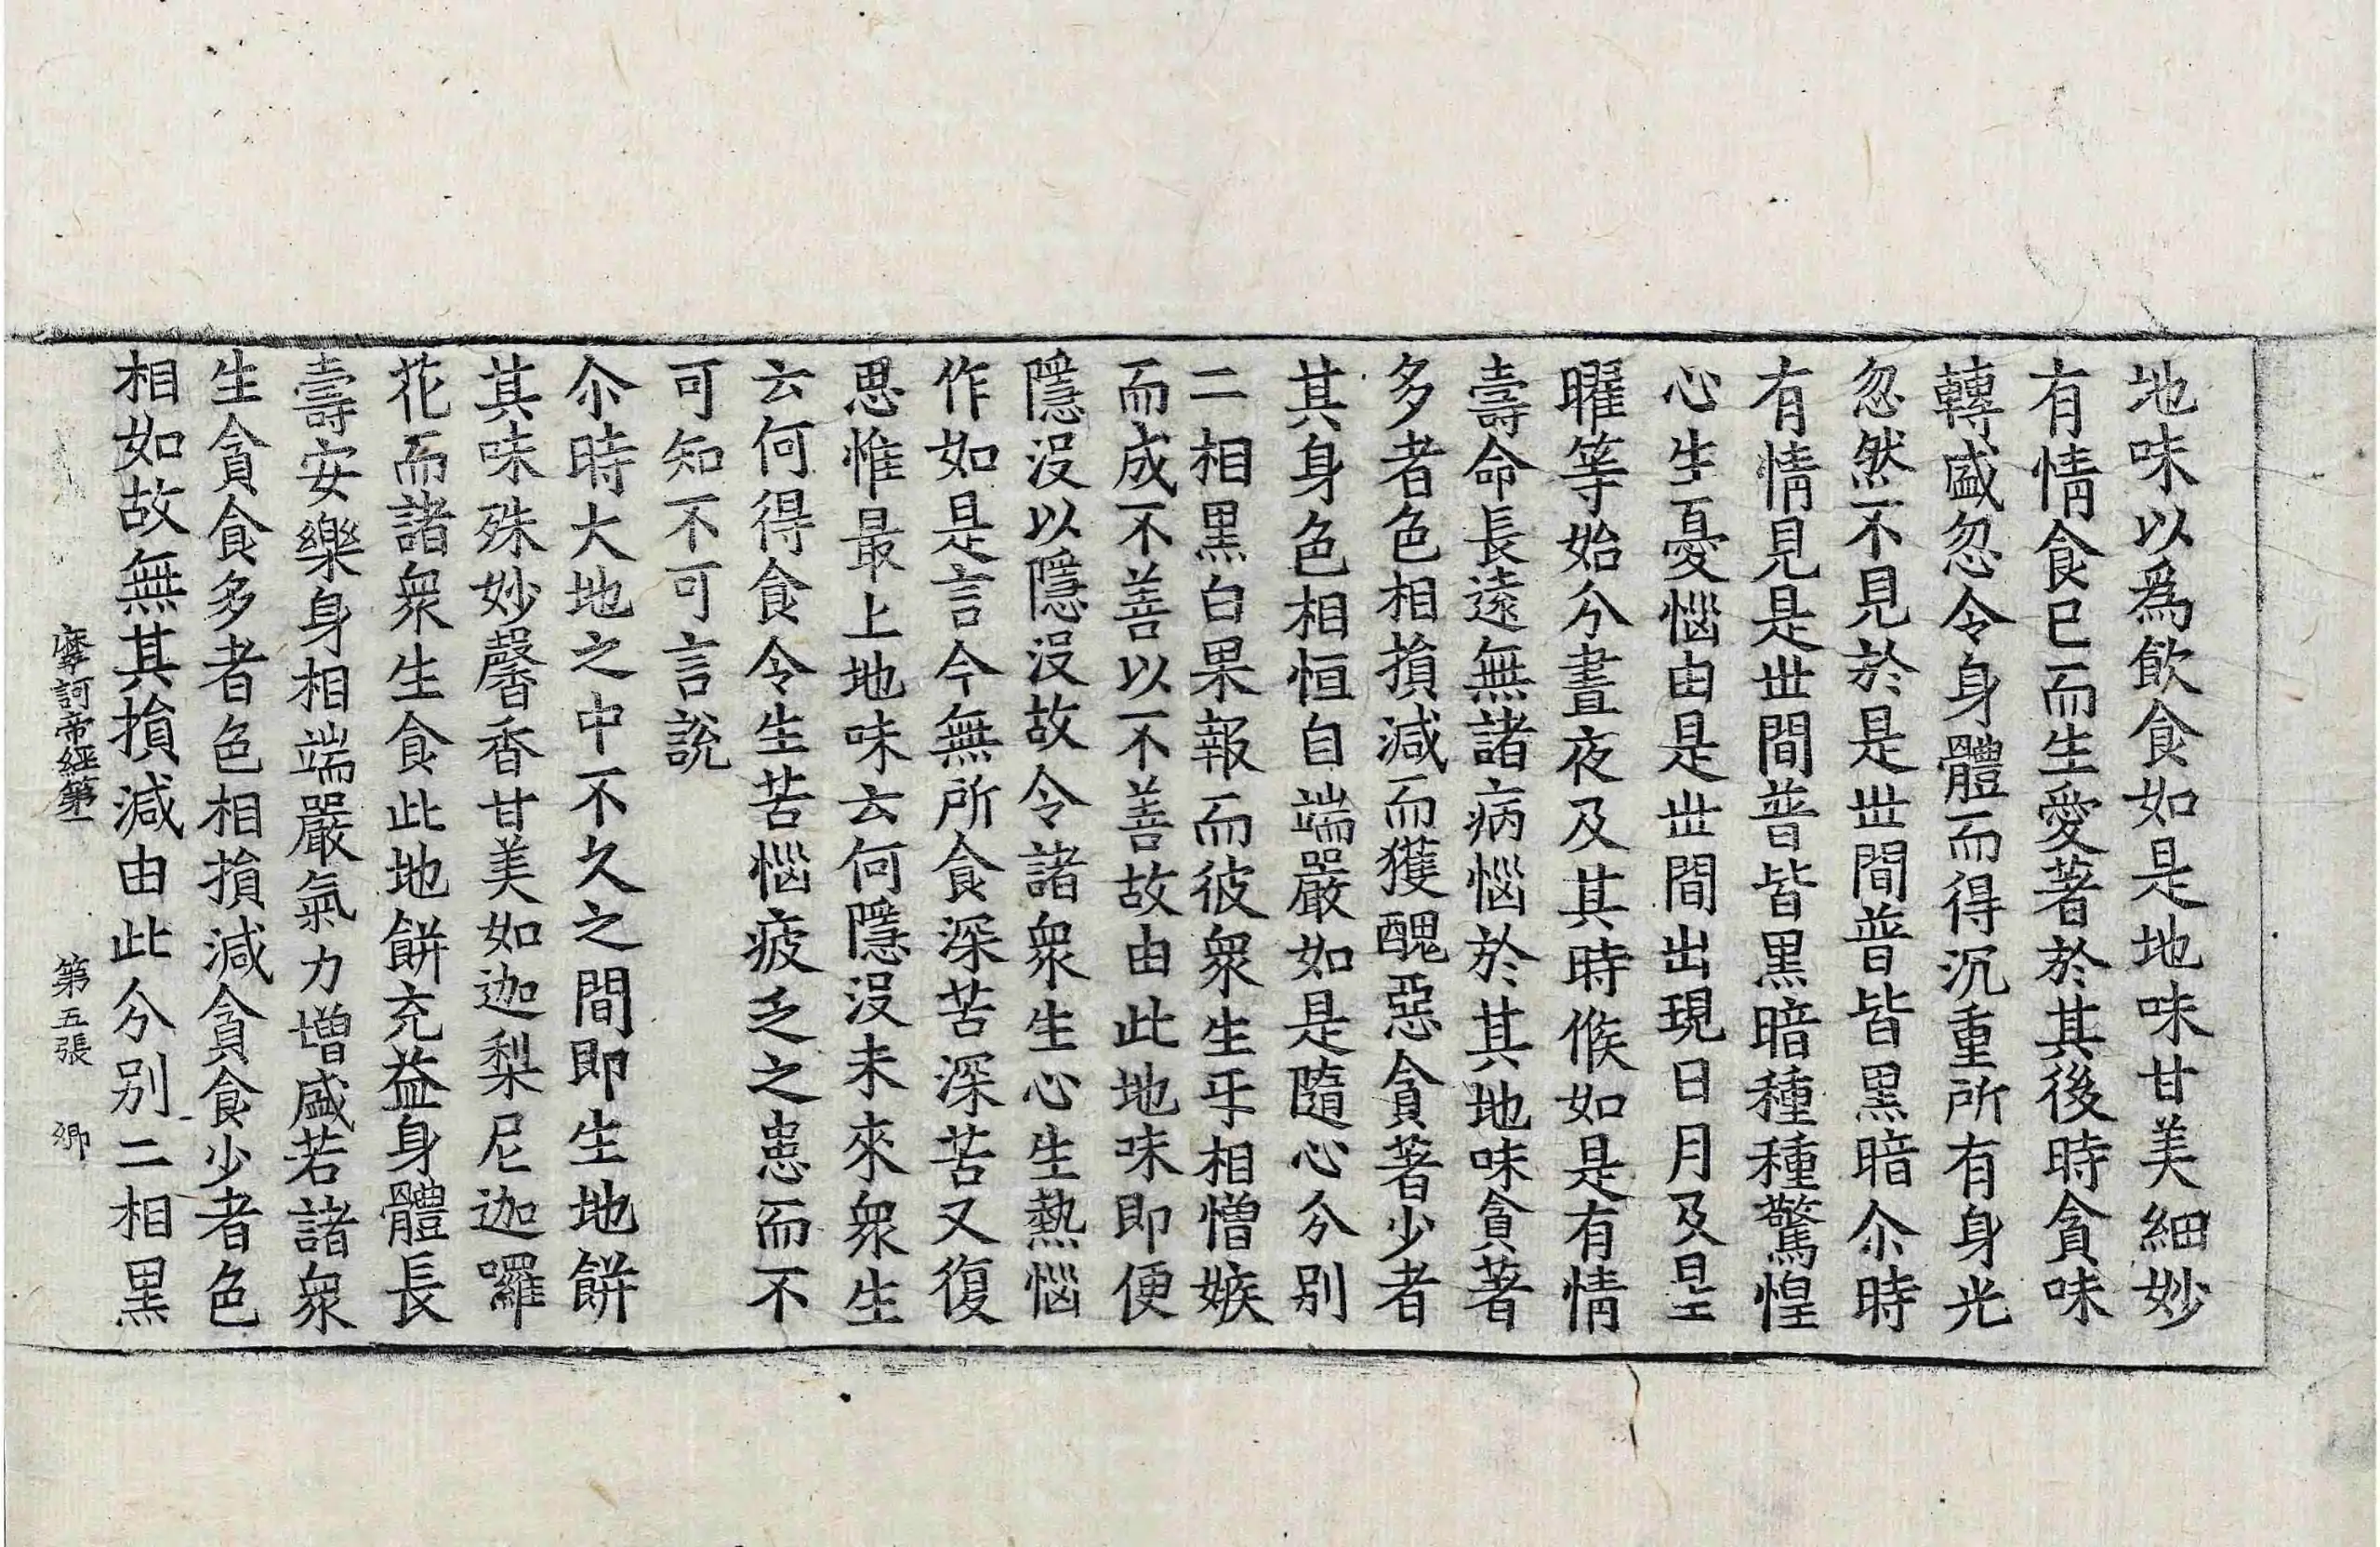 地味以爲飮食如是地味甘美細妙
有情食巳而生愛著於其後時貪味
轉盛忽令身體而得沉重所有身光
忽然不見於是丗間普皆黑暗尒時
有情見是丗間普皆黑暗種種驚惶
心生憂惱由是丗間出現日月及星
曜等始分晝夜及其時候如是有情
壽命長遠無諸病惱於其地味貪著
多者色相損減而獲醜惡貪著少者
其身色相恒自端嚴如是隨心分別
二相黑白果報而彼衆生㸦相憎嫉
而成不善以不善故由此地味即便
隱沒以隱沒故令諸衆生心生熱惱
作如是言今無所食深苦深苦又復
思惟最上地味云何隱沒未來衆生
云何得食令生苦惱疲乏之患而不
可知不可言說
尒時大地之中不久之間即生地餅
其味殊妙馨香甘美如迦梨尼迦囉
花而諸衆生食此地餅充益身體長
壽安樂身相端嚴氣力增盛若諸衆
生貪食多者色相損減貪食少者色
相如故無其損減由此分別二相黑
摩訶帝經第一 第五張 卿